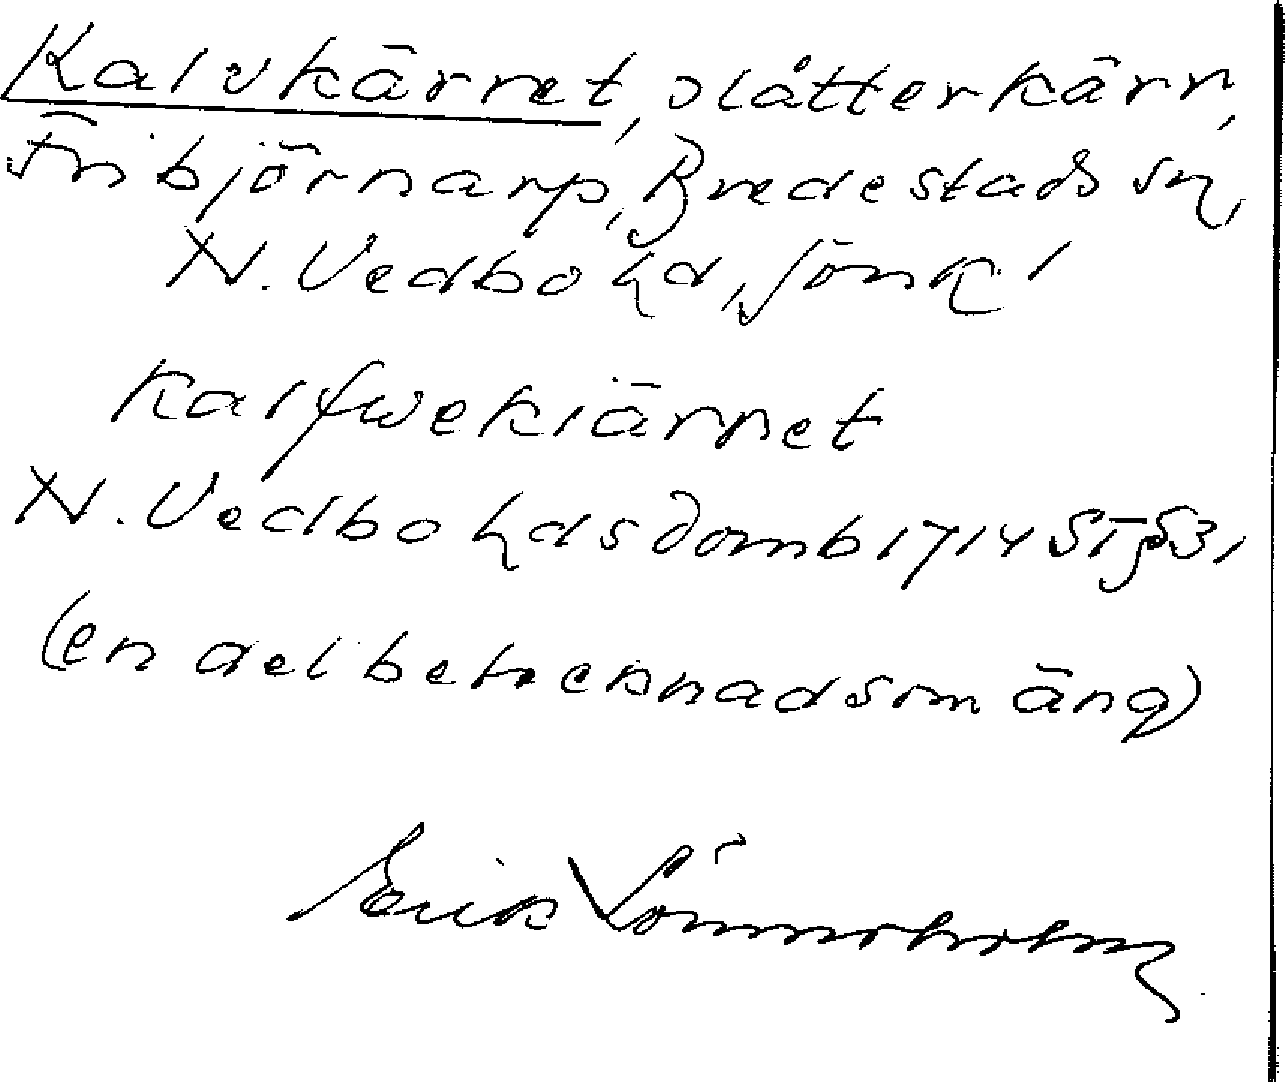 Kalvkärret, slåtterkärr,
Fribjörnarp, Bredestads sn,
N. Vedbo hd, Jönk. l
Kalfwekiärret
N. Vedbo hds domb 1714 ST § 31
(en del benennad som äng)
Erik Lönnerholm